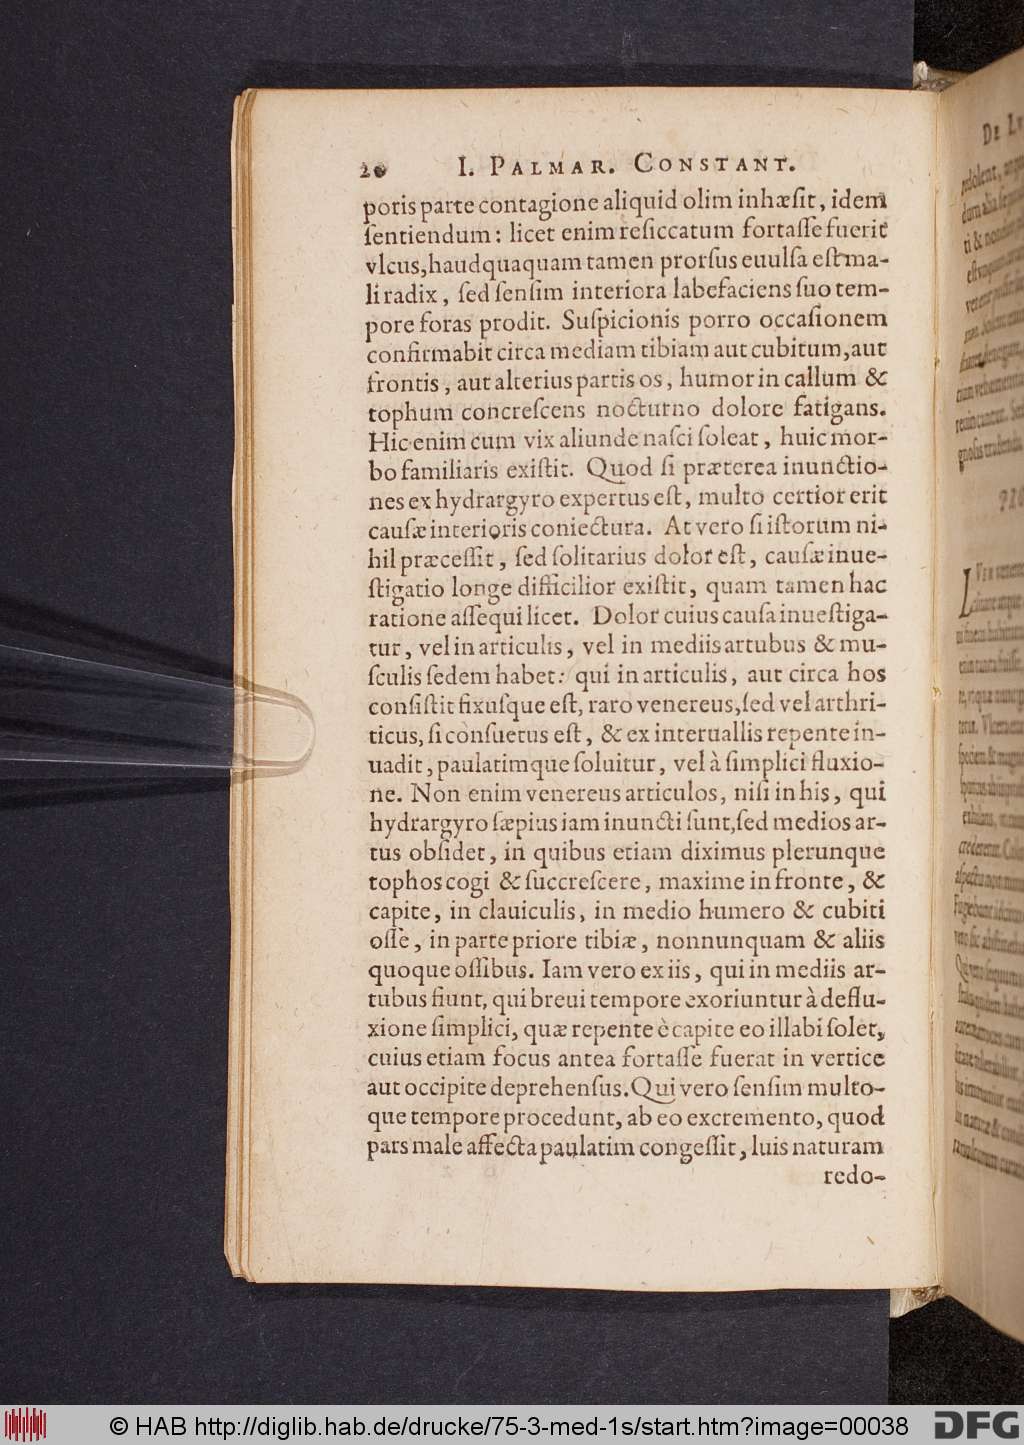 20 I. PALMAR. CONSTANT.
poris parte contagione aliquid olim inhæsit, idem
ſentiendum: licet enim reſiccatum fortaſſe fuerit
vlcus, haudquaquam tamen prorſus euulſa eſt ma-
li radix, ſed ſenſim interiora labefaciens ſuo tem-
pore foras prodit. Suſpicionis porro occaſionem
confirmabit circa mediam tibiam aut cubitum, aut
frontis, aut alterius partis os, humor in callum &
tophum concreſcens nocturno dolore fatigans.
Hic enim cum vix aliunde naſci ſoleat, huic mor-
bo familiaris exiſtit. Quod ſi præterea inunctio-
nes ex hydrargyro expertus eſt, multo certior erit
cauſæ interioris coniectura. At vero ſi iſtorum ni-
hil præceſſit, ſed ſolitarius dolor eſt, cauſæ inue-
ſtigatio longe difficilior exiſtit, quam tamen hac
ratione aſſequi licet. Dolor cuius cauſa inueſtiga-
tur, vel in articulis, vel in mediis artubus & mu-
ſculis ſedem habet: qui in articulis, aut circa hos
conſiſtit fixuſque eſt, raro venereus, ſed vel arthri-
ticus, ſi conſuetus eſt, & ex interuallis repente in-
uadit, paulatimque ſoluitur, vel à ſimplici fluxio-
ne. Non enim venereus articulos, niſi in his, qui
hydrargyro ſæpius iam inuncti ſunt, ſed medios ar-
tus obſidet, in quibus etiam diximus plerunque
tophos cogi & ſuccreſcere, maxime in fronte, &
capite, in clauiculis, in medio humero & cubiti
oſſe, in parte priore tibiæ, nonnunquam & aliis
quoque oſſibus. Iam vero ex iis, qui in mediis ar-
tubus fiunt, qui breui tempore exoriuntur à deflu-
xione ſimplici, quæ repente è capite eo illabi ſolet,
cuius etiam focus antea fortaſſe fuerat in vertice
aut occipite deprehenſus. Qui vero ſenſim multo-
que tempore procedunt, ab eo excremento, quod
pars male affecta paulatim congeſſit, luis naturam
redo-
© HAB http://diglib.hab.de/drucke/75-3-med-1s/start.htm?image=00038
DFG